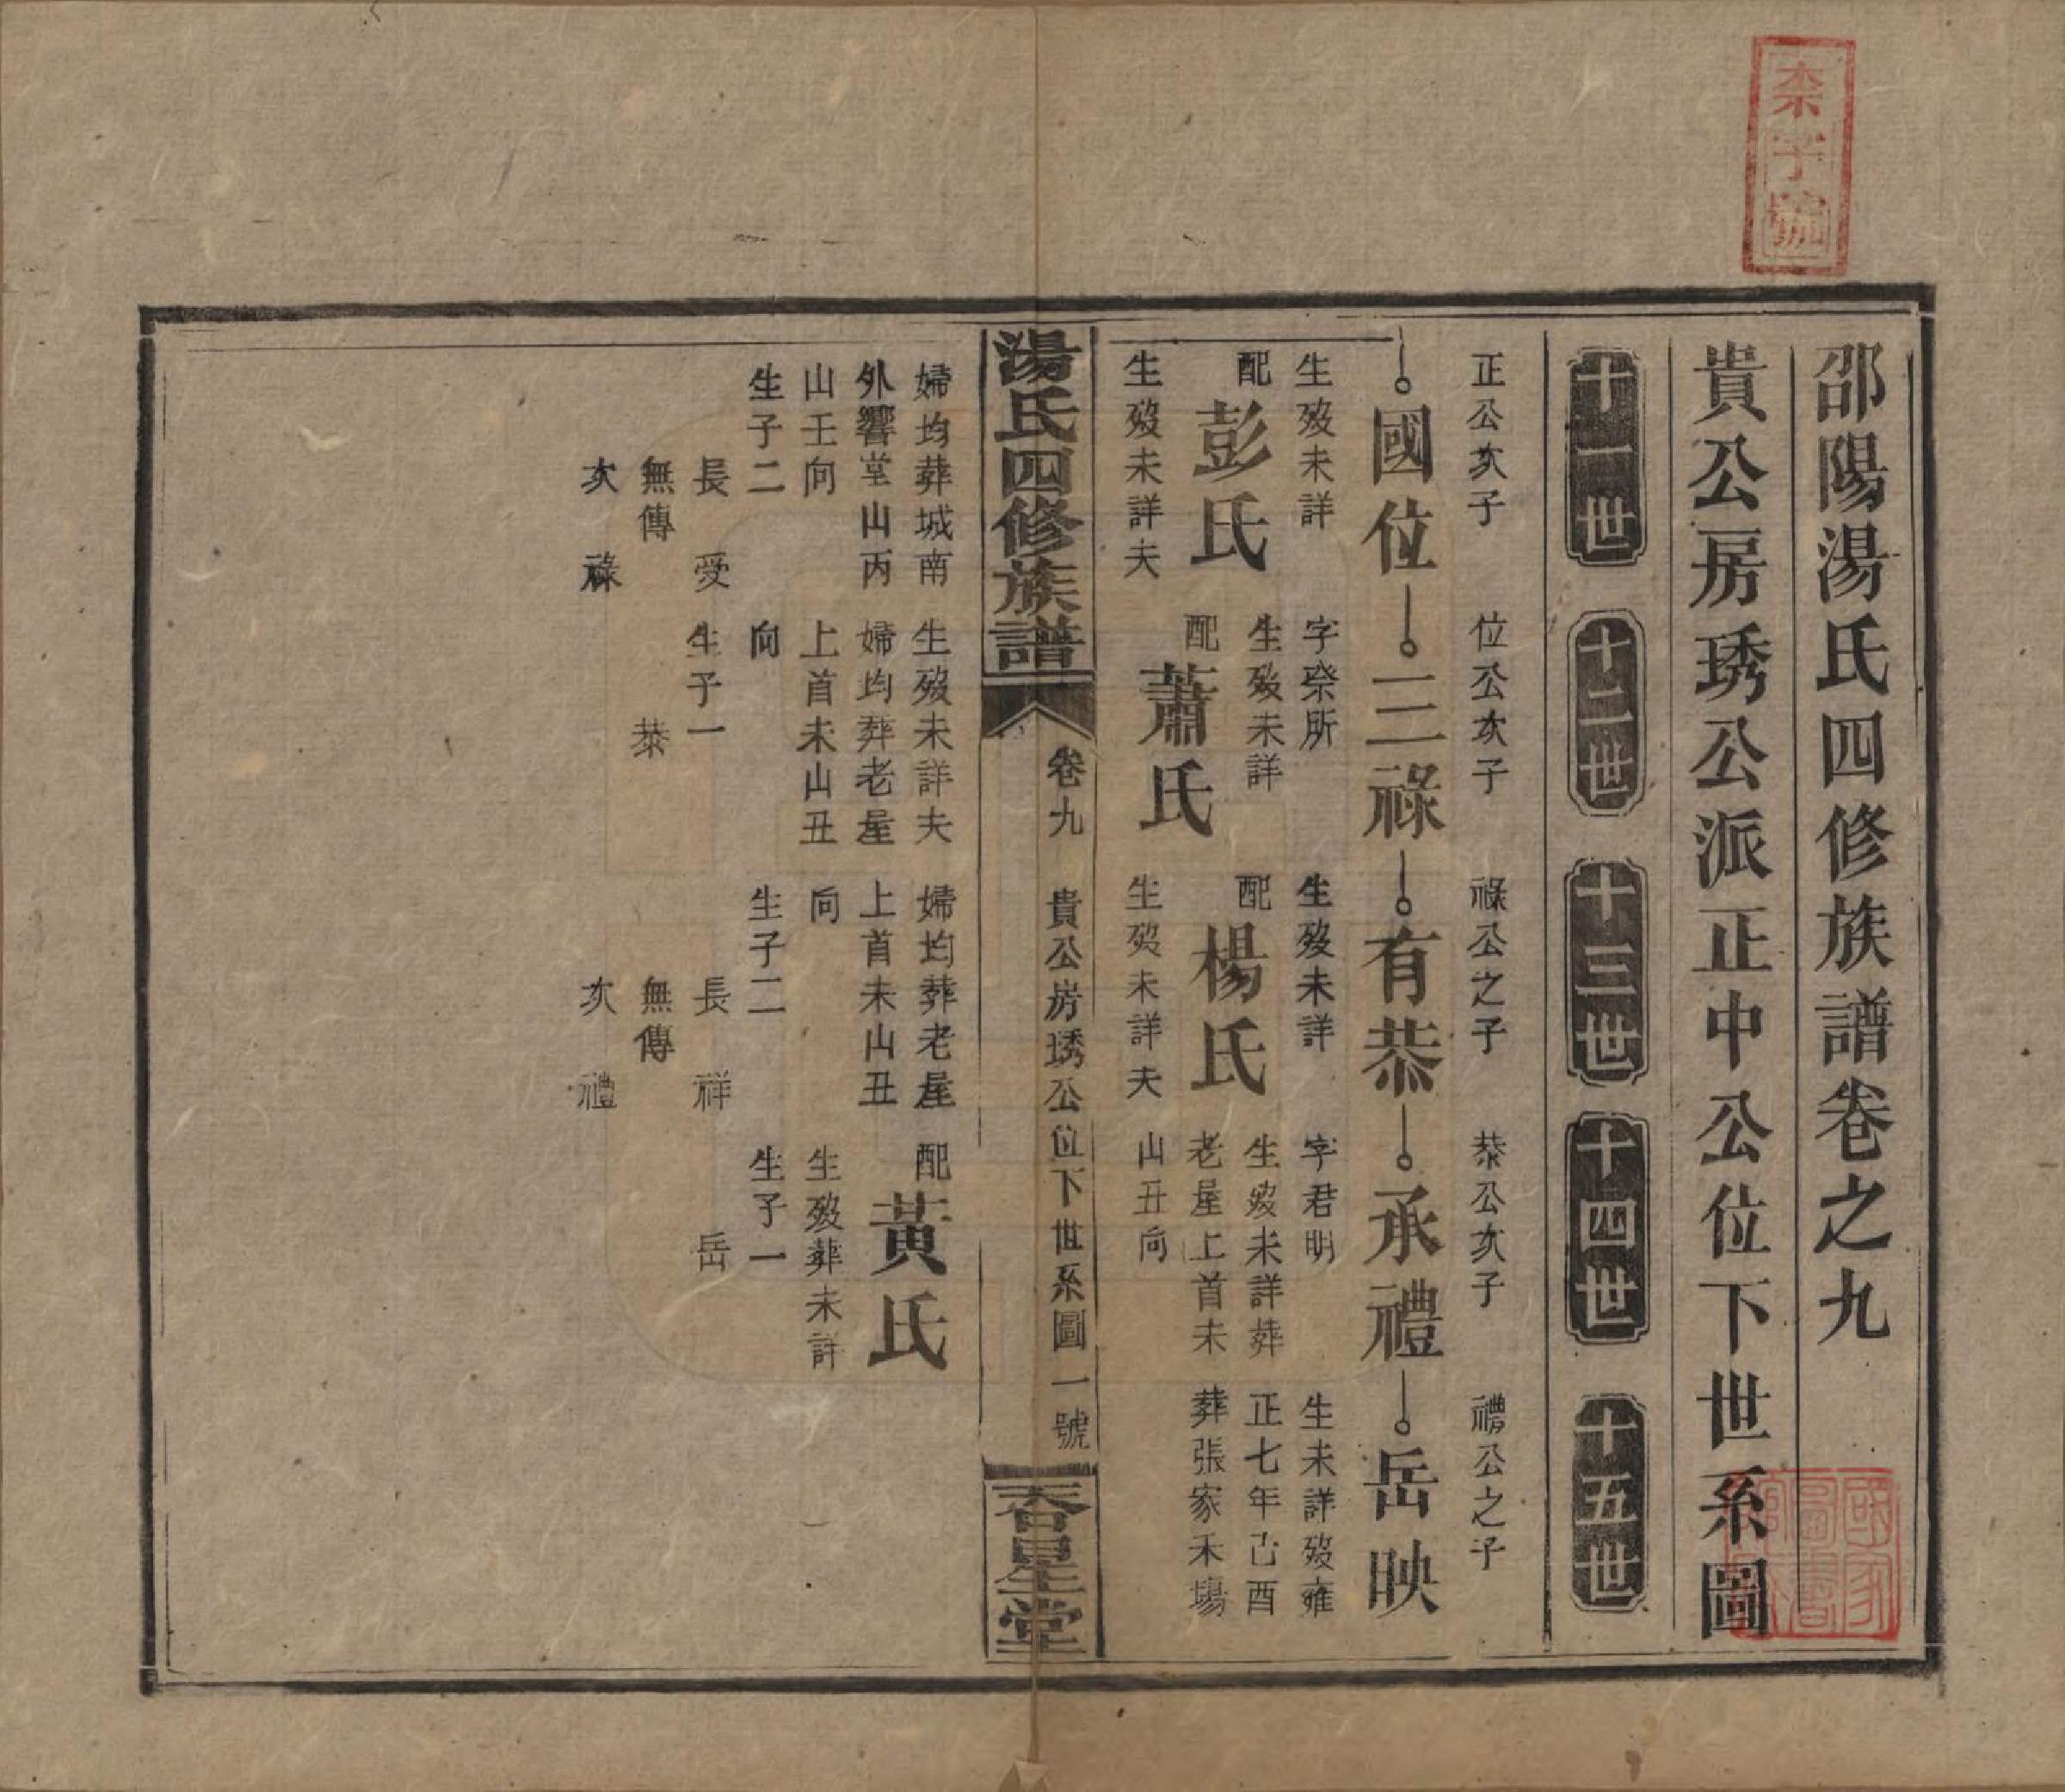 柰字號
邵陽湯氏四修族譜卷之九
貴公房琇公派正中公位下世系圖
十一世
十二世
十三世
十四世
十五世
正公次子
國位
生歿未詳
配
彭氏
生歿未詳夫
婦均葬城南
外響堂山丙
山壬向
生子二
長 受
無傳
次 祿
位公次子
三祿
字榮所
生歿未詳
配
蕭氏
生歿未詳夫
婦均葬老屋
上首未山丑
向
生子一
恭
祿公之子
有恭
生歿未詳
配
楊氏
生歿未詳夫
婦均葬老屋
上首未山丑
向
生子二
長 祥
無傳
次 禮
恭公次子
承禮
字君明
生歿未詳葬
老屋上首未
山丑向
配
黃氏
生歿葬未詳
生子一
岳
禮公之子
岳映
生未詳歿雍
正七年己酉
葬張家禾場
湯氏四修族譜
卷九
貴公房琇公位下世系圖
一號
吞星堂
國家
圖書